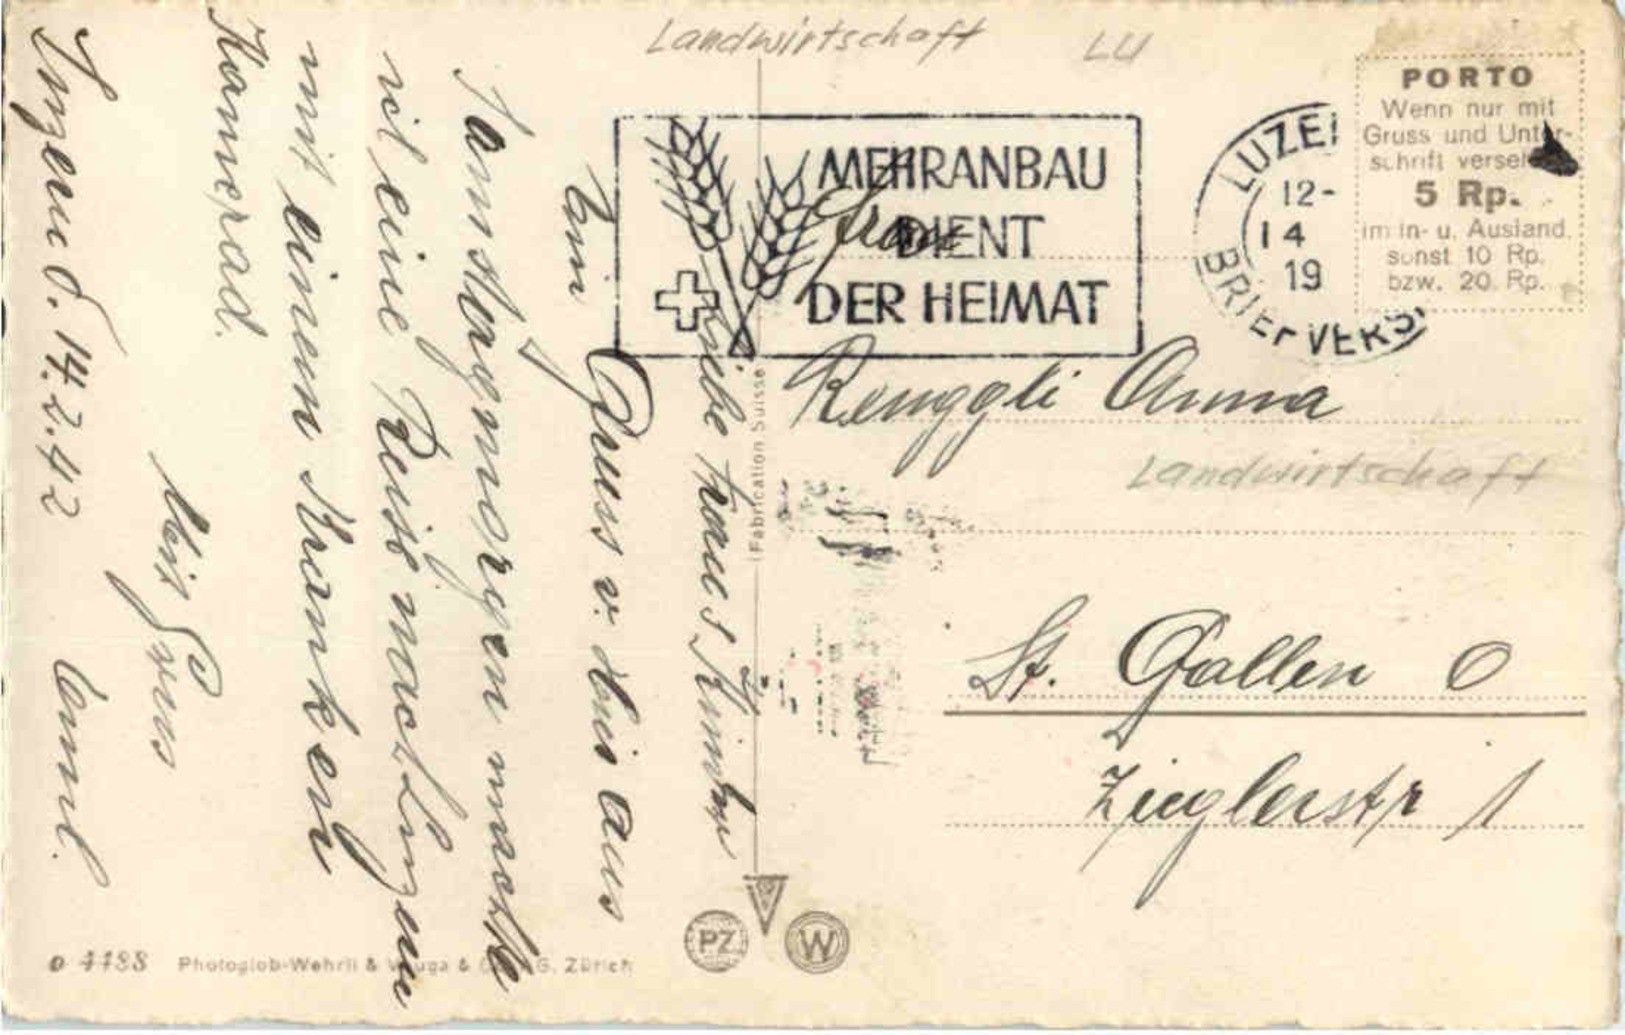 Landwirtschaft LU
PORTO
Wenn nur mit
Gruss und Unter-
schrift versehen
5 Rp.
im In- u. Ausland
sonst 10 Rp.
bzw. 20 Rp.
MEHRANBAU
DIENT
DER HEIMAT
LUZE
12-
14
19
BRIEFVERS
Frau
Renggli Anna
Landwirtschaft
St. Gallen O
Zieglerstr 1
Luzern d. 14.2.42
Liebe
Ein Gruss v. hir aus
Samstagmorgen machte
ich eine Reise nach Luzern
mit einem kranken
Kamerad.
Mit Gruss
Emil.
Fabrication Suisse
PZ W
o 4188 Photoglob-Wehrli & Vouga & Co. A.G. Zürich